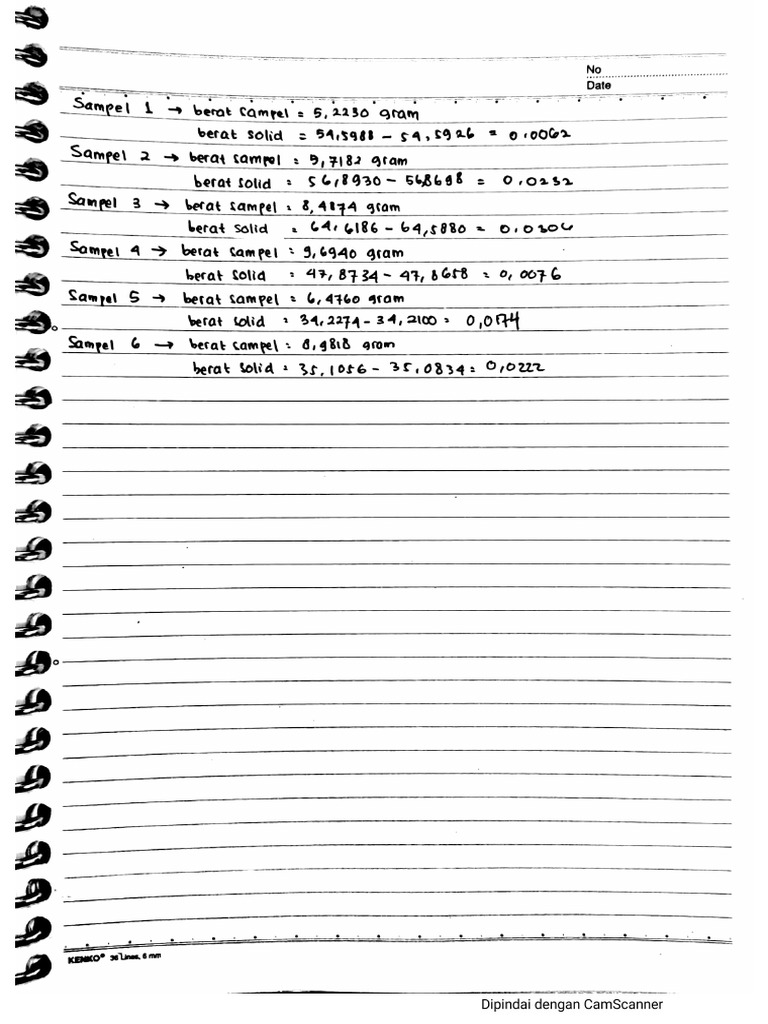 No
Date
Sampel 1 → berat campel = 5,2230 gram
berat solid = 54,5988 - 54,5926 = 0,0062
Sampel 2 → berat sampel = 5,7182 gram
berat solid = 56,8930 - 568698 = 0,0232
Sampel 3 → berat sampel = 8,4874 gram
berat solid = 64,6186 - 64,5880 = 0,0306
Sampel 4 → berat sampel = 9,6940 gram
berat solid = 47,8734 - 47,8658 = 0,0076
Sampel 5 → berat sampel = 6,4760 gram
berat solid = 34,2274 - 34,2100 = 0,0174
Sampel 6 → berat sampel = 8,9818 gram
berat solid = 35,1056 - 35,0834 = 0,0222
KENKO® 36 Lines, 6 mm
Dipindai dengan CamScanner